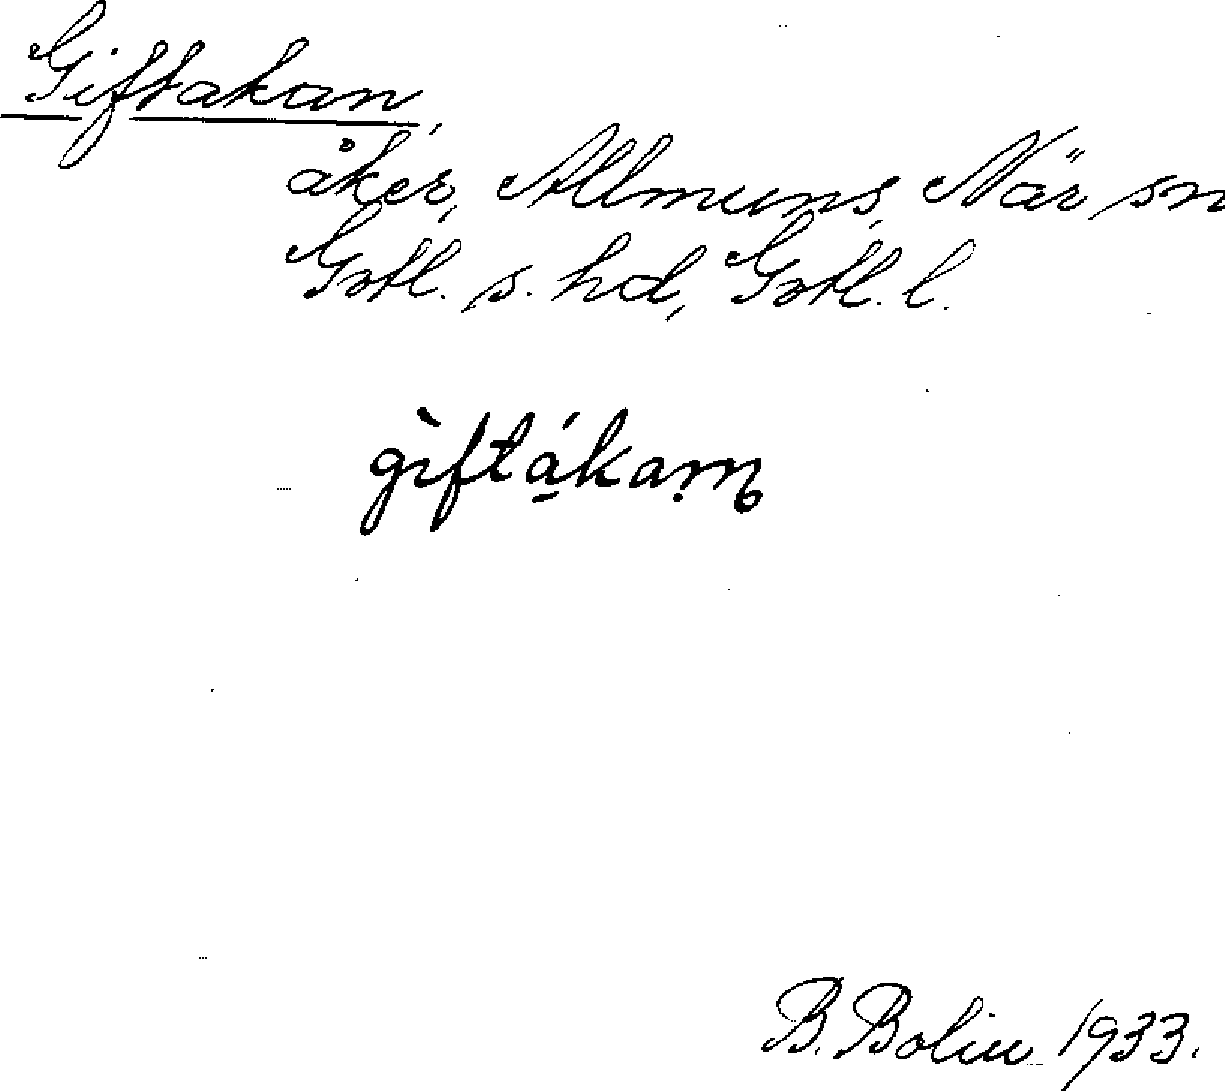 Giftakan,
åker, Allmuns, När sn
Gotl. s. hd, Gotl. l.
B. Bolin 1933.